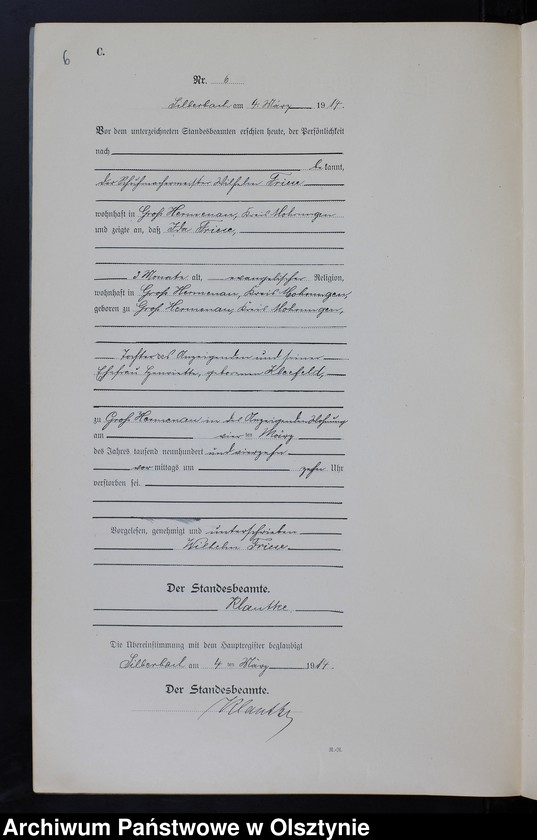 6
C.
Nr. 6
Silberbach am 4. März 1914.
Vor dem unterzeichneten Standesbeamten erschien heute, der Persönlichkeit
nach
bekannt,
der Schuhmachermeister Wilhelm Friese
wohnhaft in Groß Hermenau, Kreis Mohrungen
und zeigte an, daß Ida Friese,
3 Monate alt, evangelischer Religion,
wohnhaft in Groß Hermenau, Kreis Mohrungen,
geboren zu Groß Hermenau, Kreis Mohrungen,
Tochter des Anzeigenden und seiner
Ehefrau Henriette, geborenen
zu Groß Hermenau in des Anzeigenden Wohnung
am vierten März
des Jahres tausend neunhundert und vierzehn
vormittags um zehn Uhr
verstorben sei.
Vorgelesen, genehmigt und unterschrieben
Wilhelm Friese
Der Standesbeamte.
Klautke
Die Übereinstimmung mit dem Hauptregister beglaubigt
Silberbach am 4ten März 1914.
Der Standesbeamte.
Klautke
Archiwum Państwowe w Olsztynie